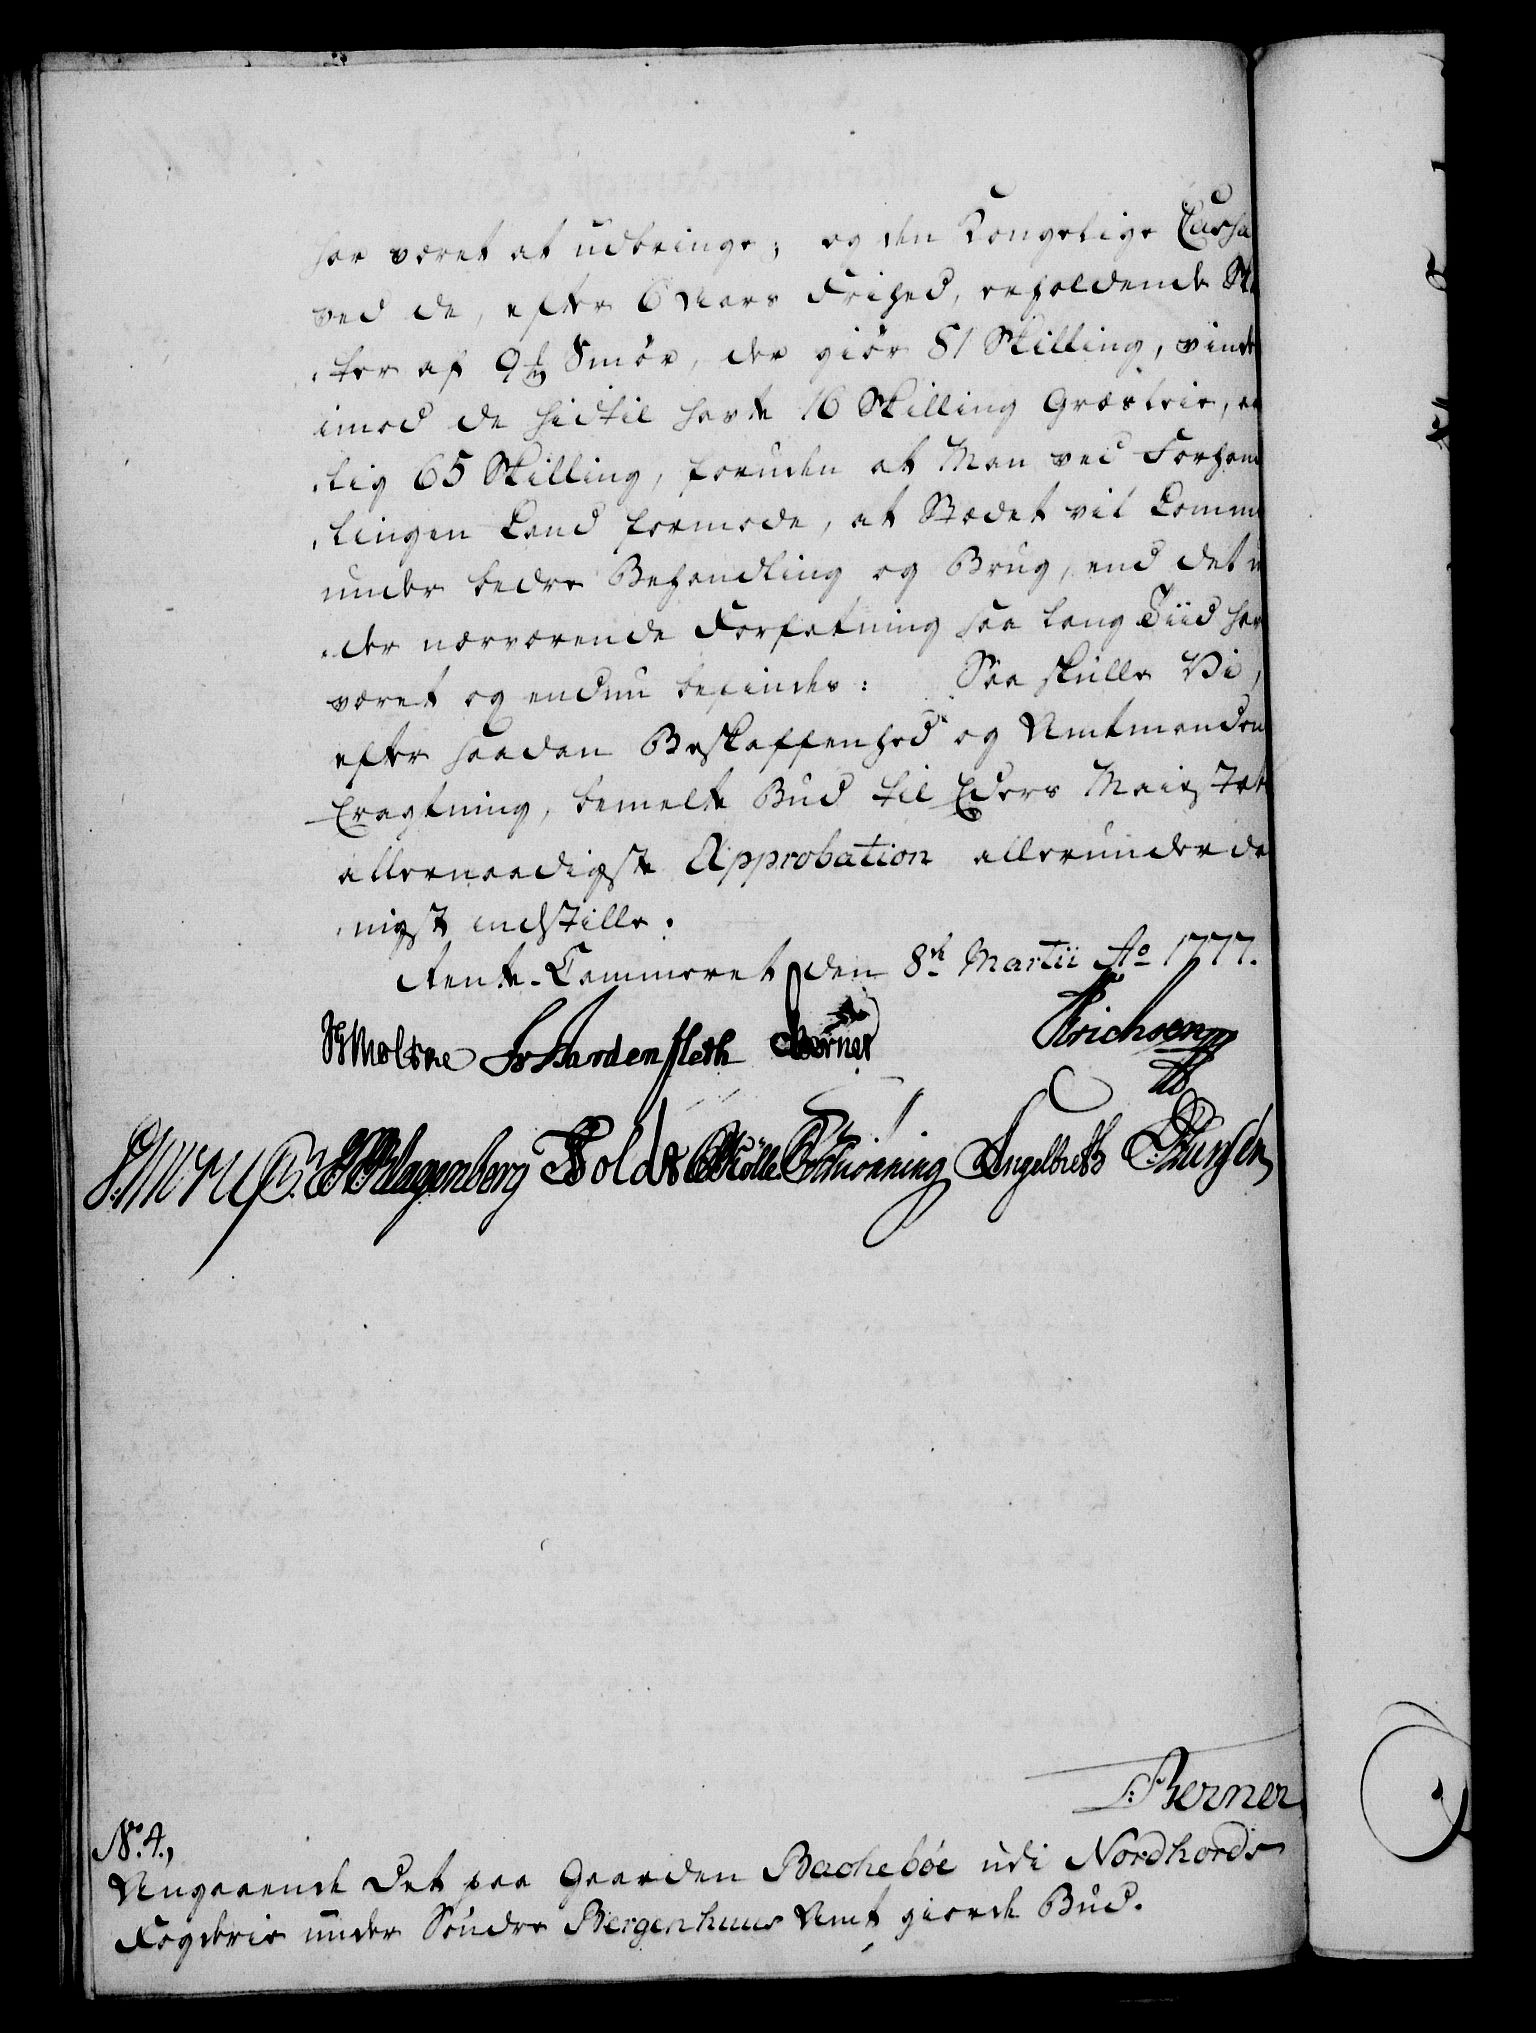 har været at udbringe; og den Kongelige Cassa
ved de, efter 6 Aars Frihed, erholdende Skat
ter af 9 ℔ Smør, der giør 81 Skilling, vinder
imod de hidtil havte 16 Skilling Græsleie, aar
lig 65 Skilling, foruden at Man ved Forhand
lingen kand formode, at Stædet vil komme
under bedre Behandling og Brug, end det un
der nærværende Forfatning saa lang Tiid har
været og endnu befindes: Saa skulle Vi,
efter saadan Beskaffenhed og Amtmandens
Eragtning, bemelte Bud til Eders Majestæts
allernaadigste Approbation allerunderda
nigst indstille.
Rente-Cammeret den 8de Martii Ao 1777.
HMoltke FvHardenfleth Berner Erichsen
Klagenberg Holdt Müller Schiønning Engelbreth
Berner
No. 4.,
Angaaende Det paa Gaarden Bachebøe udi Nordhords
Fogderie under Søndre Bergenhuus Amt giorde Bud.